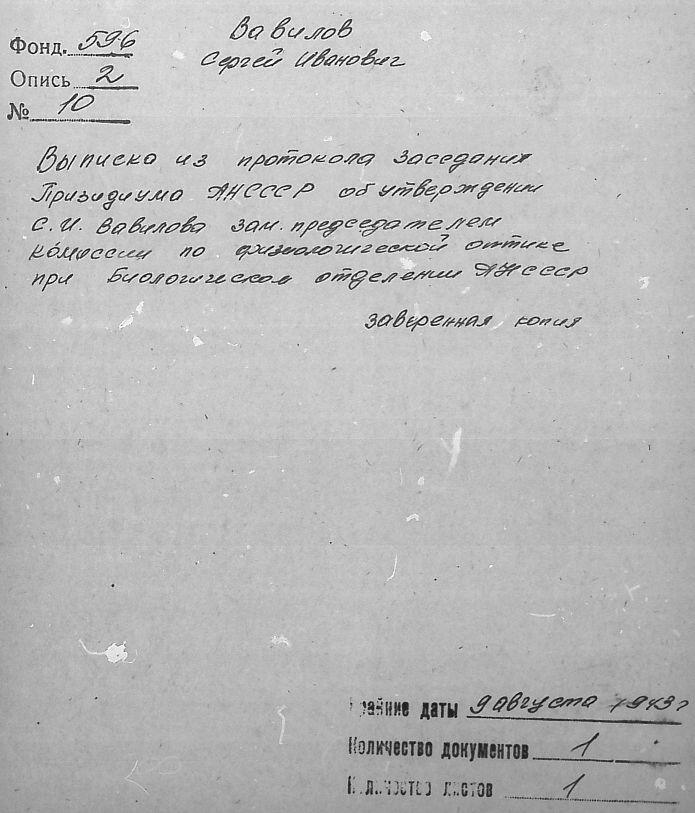 Фонд. 596
Опись 2
№ 10
Вавилов
Сергей Иванович
Выписка из протокола заседания
Призидиума АНСССР об утверждении
С. И. Вавилова зам. председателем
комиссии по физиологической оптике
при Биологическом отделении АНСССР
заверенная копия
Крайние даты 9 августа 1943 г
Количество документов 1
Количество листов 1